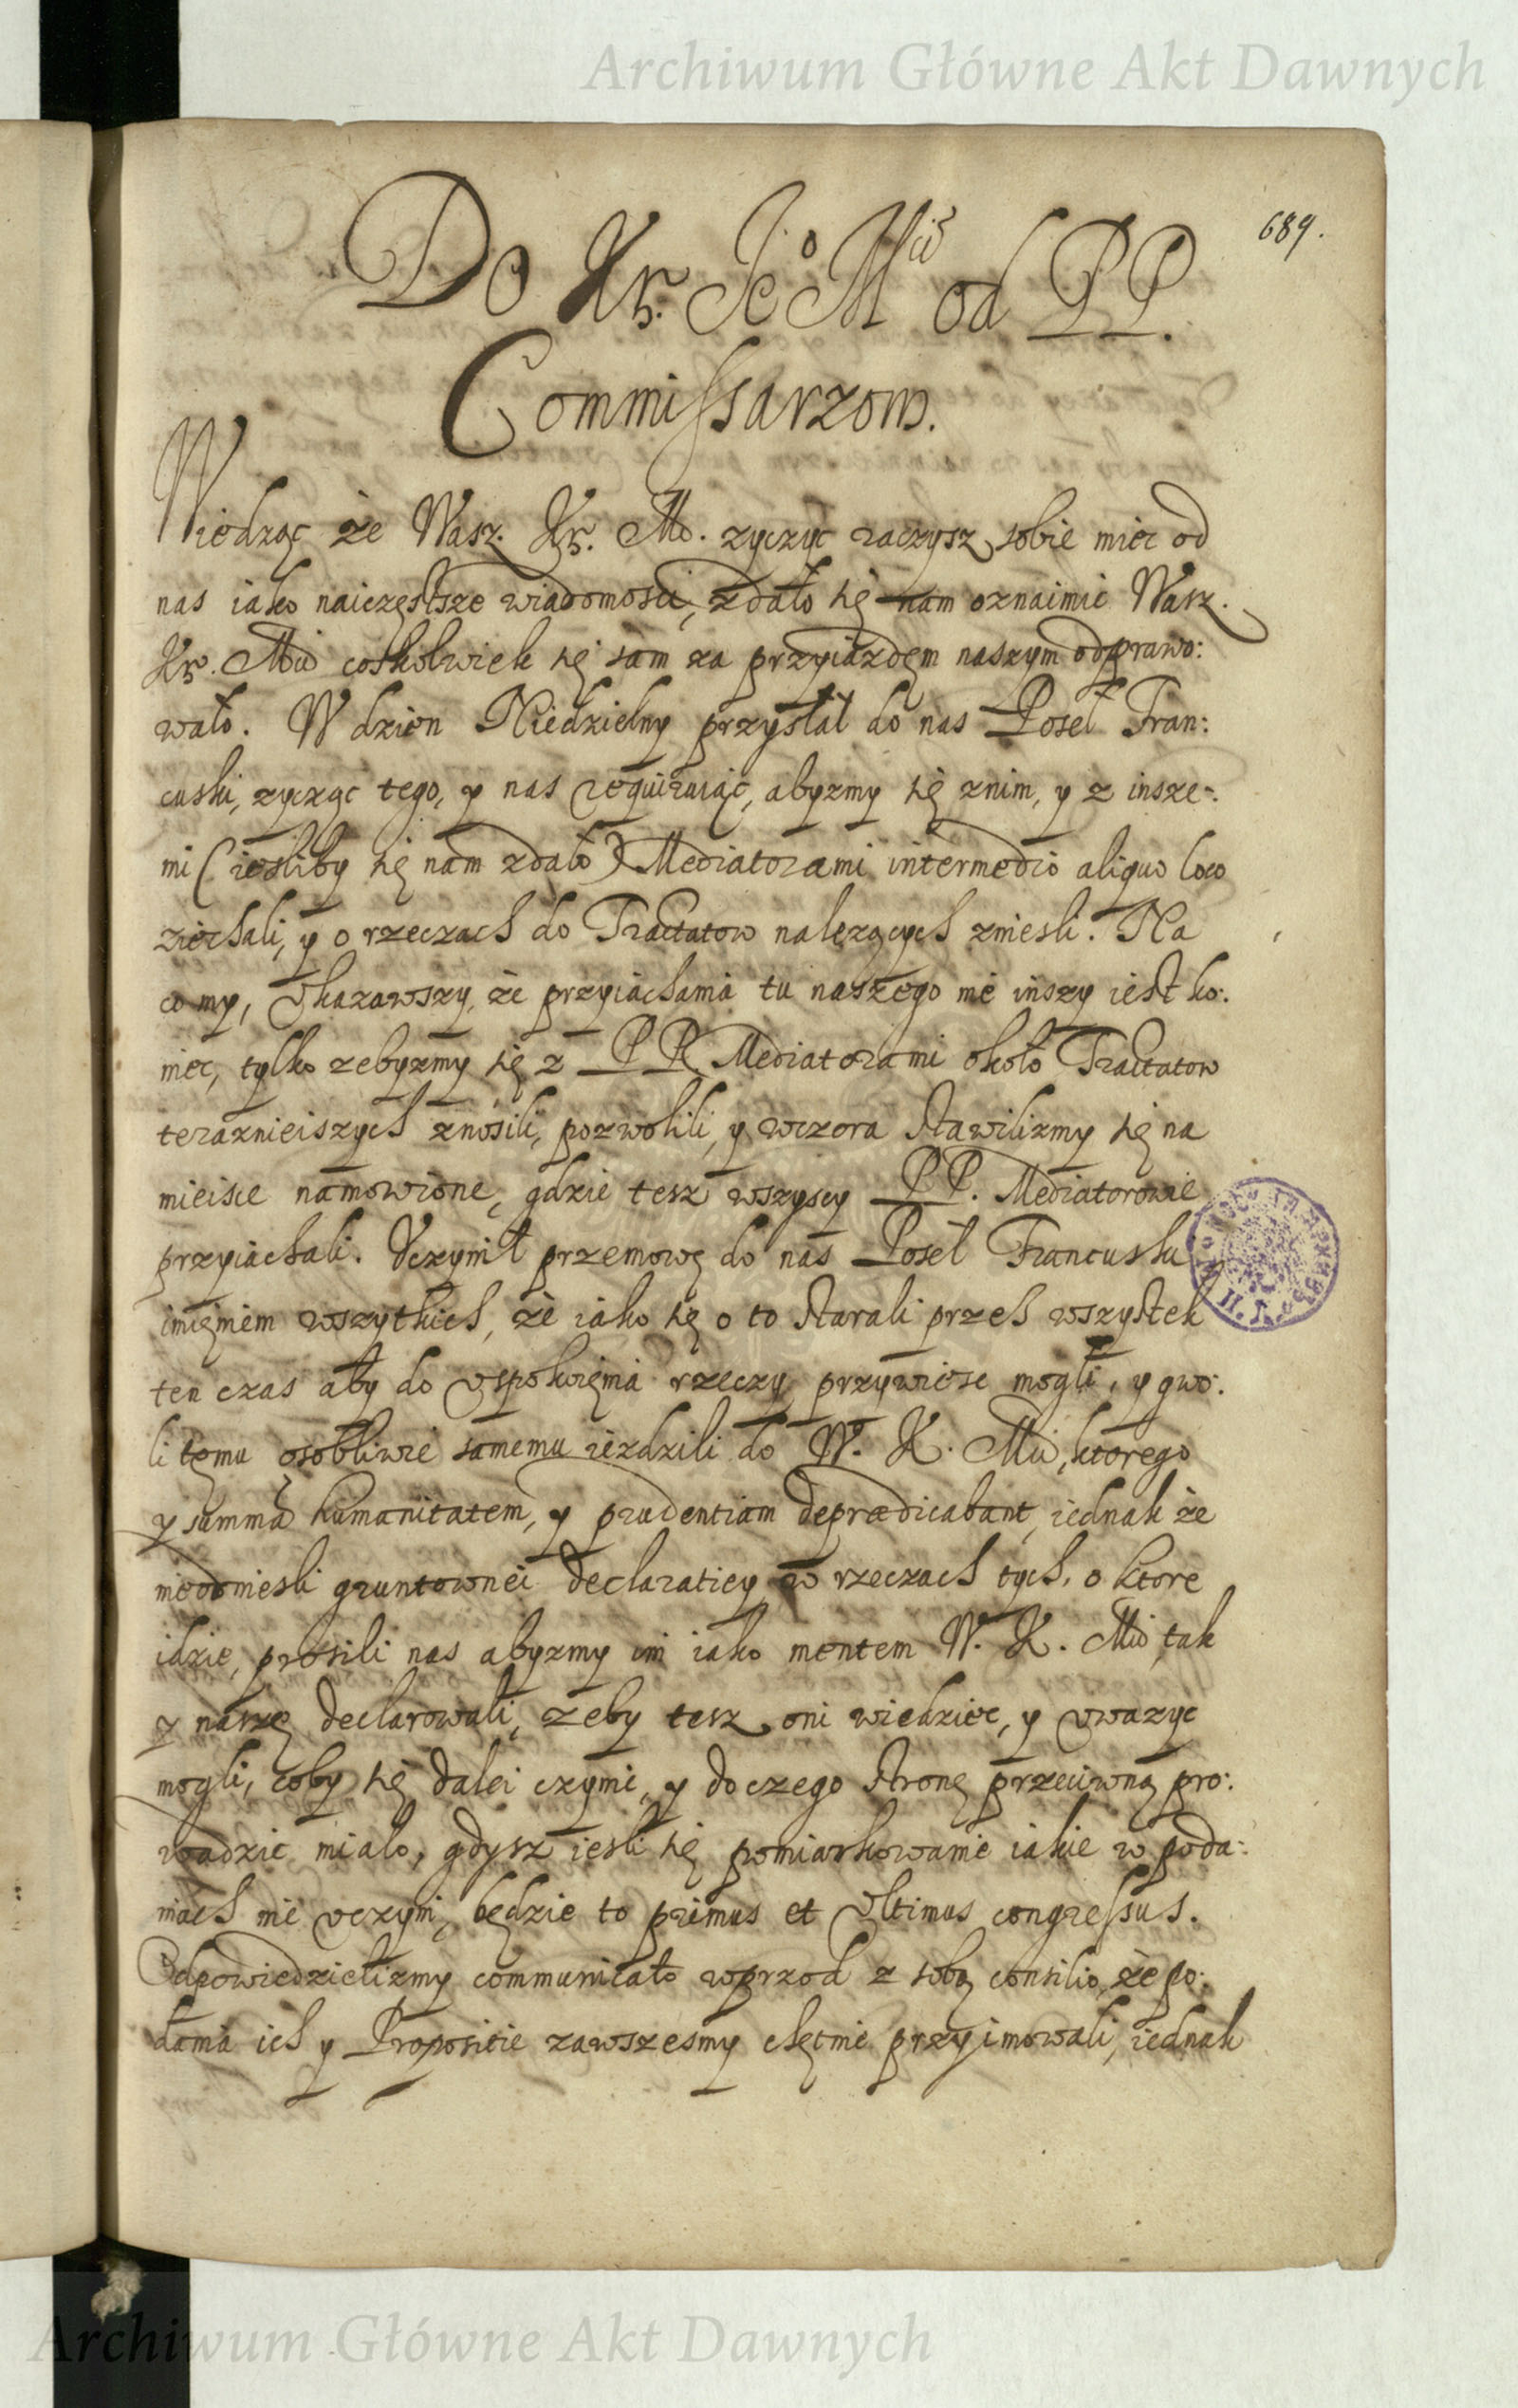 Archiwum Główne Akt Dawnych
689.
Do Kr. Je° Mci od PP.
Commissarzow.
Wiedząc że Wasz. Kr. Mć. zyczyc raczysz sobie miec od
nas iako naiczęstsze wiadomosci, zdało się nam oznaimic Wasz.
Kr. Mci coskolwiek się tam za przyiazdęm naszym odprawo:
wało. W dzien Niedzielny przysłał do nas Poseł Fran:
cuski, zycząc tego, y nas requiruiąc, abyzmy się znim, y z insze:
mi (iesliby się nam zdało) Mediatorami intermedio aliquo loco
ziechali, y o rzeczach do Tractatow nalezących zniesli. Na
co my, Ukazawszy, że przyiachania tu naszego nie inszy iest ko:
niec, tylko zebyzmy się z PP. Mediatorami około Tractatow
teraznieiszych znosili, pozwolili, y wczora stawilizmy się na
mieisce namowione, gdzie tesz wszyscy PP. Mediatorowie
przyiachali. Uczynił przemowę do nas Poseł Francuski
imięniem wszytkich, że iako się o to starali przes wszystek
ten czas aby do uspokoięnia rzeczy przywiesc mogli, y gwo:
li tęmu osobliwie samemu iezdzili do W. K. Mci, ktorego
y summą humanitatem, y prudentiam deprædicabant, iednak że
nieodniesli gruntownei declaratiey w rzeczach tych, o ktore
idzie, prosili nas abyzmy im iako mentem W. K. Mci tak
y naszę declarowali, zeby tesz oni wiedziec, y uwazyc
mogli, coby się dalei czynic, y doczego stronę przeciwną pro:
wadzic miało, gdysz iesli się pomiarkowanie iakie w poda:
niach nie uczyni, będzie to primus et Ultimus congressus.
Odpowiedzielizmy communicato wprzod z sobą consilio, że po:
dania ich y Propositie zawszesmy chętnie przyimowali, iednak
Archiwum Główne Akt Dawnych